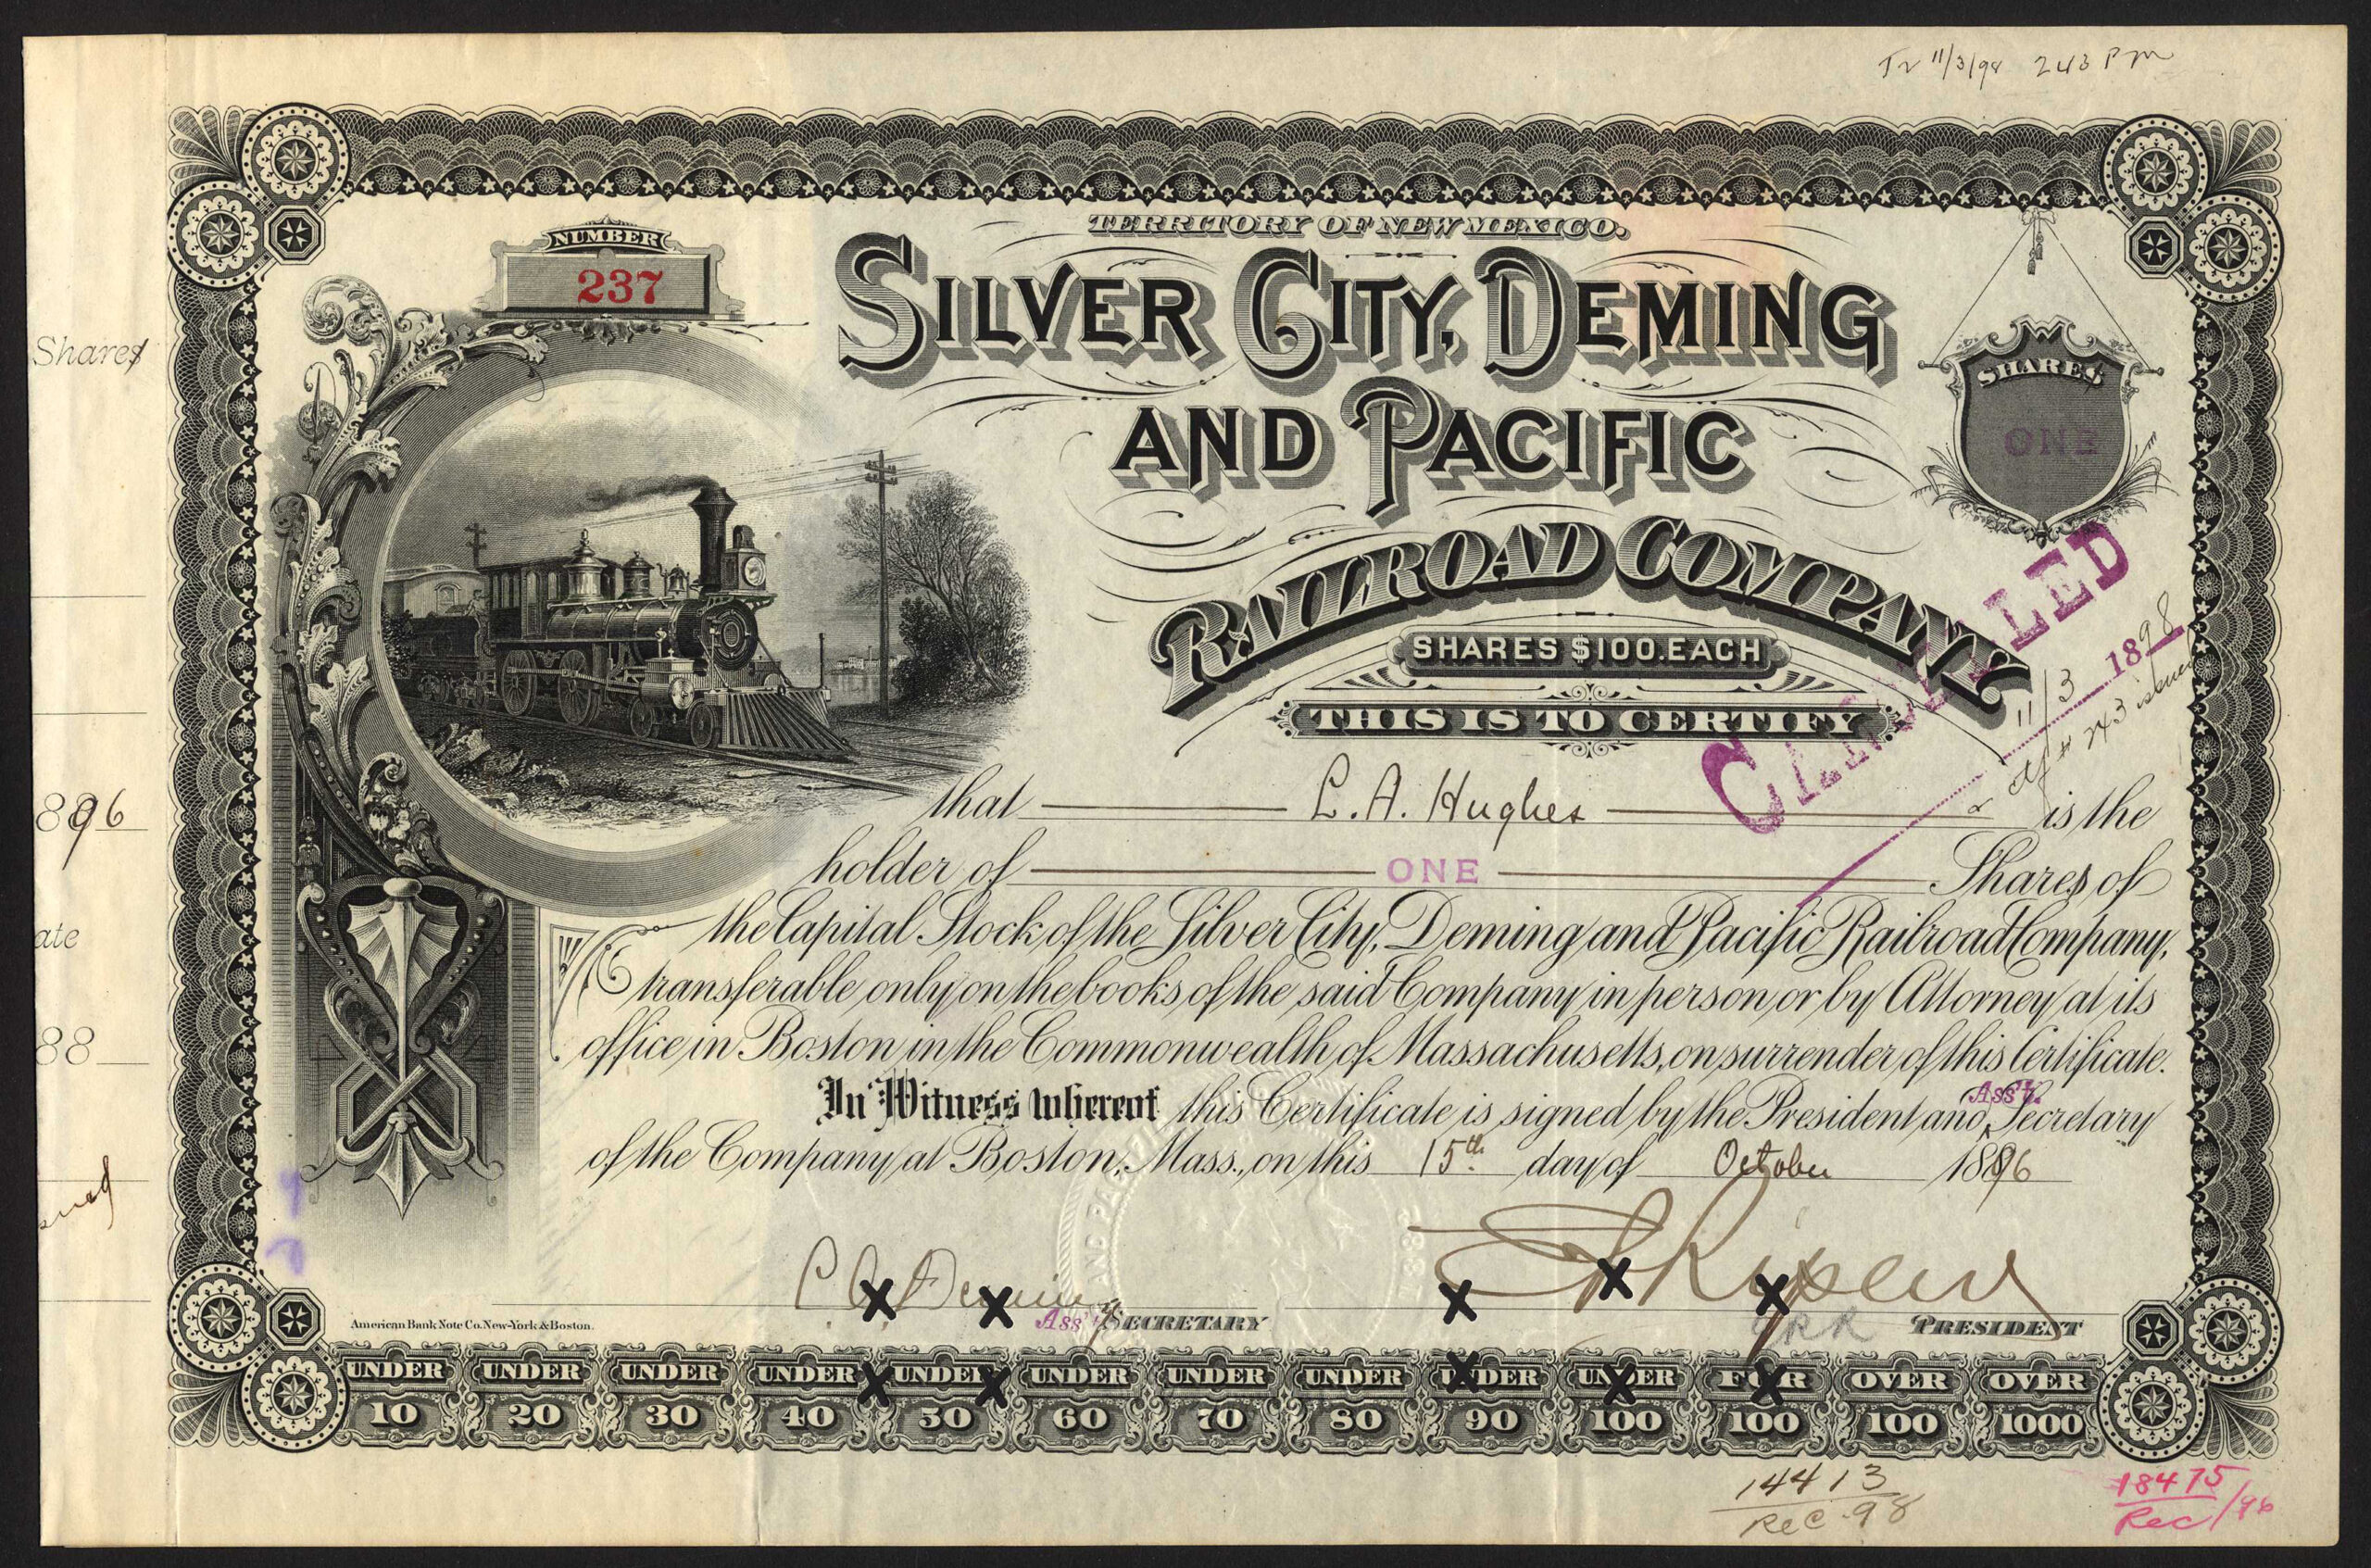 Tr 11/3/98 243 PM
TERRITORY OF NEW MEXICO.
NUMBER
237
SILVER CITY, DEMING
AND PACIFIC
RAILROAD COMPANY
SHARES
ONE
Shares
SHARES $100. EACH
THIS IS TO CERTIFY
CANCELLED
11/3 1898
# 243 issued
that L. A. Hughes is the
896
holder of ONE Shares of
the Capital Stock of the Silver City, Deming and Pacific Railroad Company,
ate
transferable only on the books of the said Company in person or by Attorney at its
office in Boston in the Commonwealth of Massachusetts, on surrender of this Certificate.
88
In Witness whereof this Certificate is signed by the President and Ass't. Secretary
of the Company at Boston, Mass., on this 15th day of October 1896
AND PA
American Bank Note Co. New-York & Boston.
Ass't SECRETARY
PRESIDENT
UNDER UNDER UNDER UNDER UNDER UNDER UNDER UNDER UNDER UNDER FOR OVER OVER
10 20 30 40 50 60 70 80 90 100 100 100 1000
14413
Rec. 98
18475
Rec/96